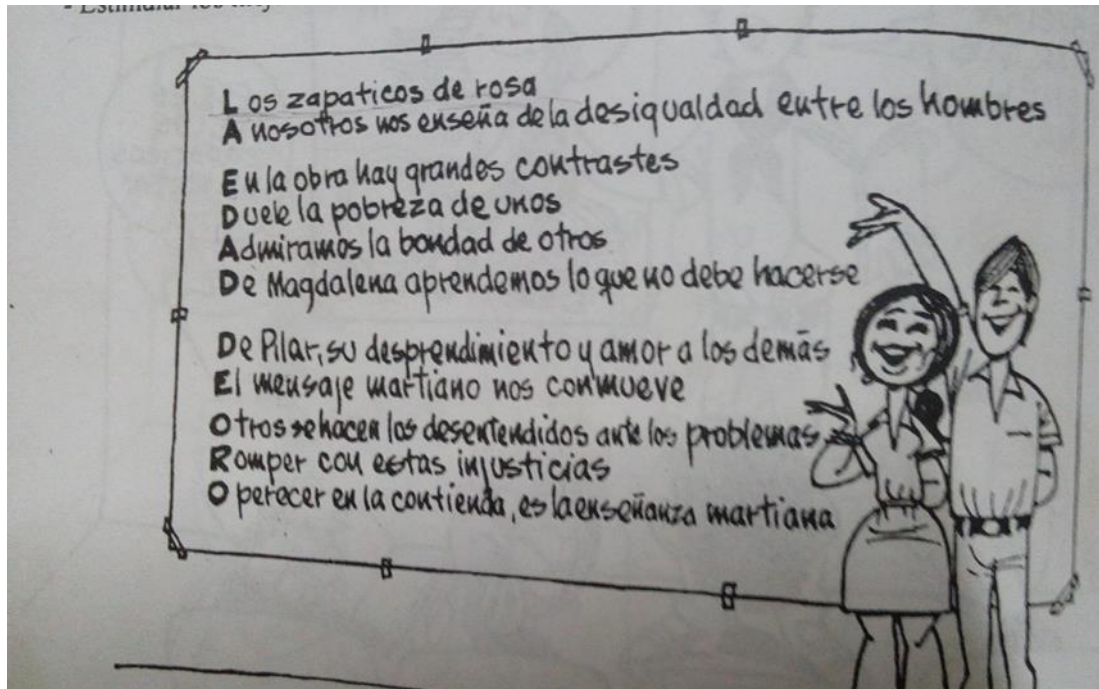 - Estimular los
Los zapaticos de rosa
A nosotros nos enseña de la desigualdad entre los hombres
En la obra hay grandes contrastes
Duele la pobreza de unos
Admiramos la bondad de otros
De Magdalena aprendemos lo que no debe hacerse
De Pilar, su desprendimiento y amor a los demás
El mensaje martiano nos conmueve
Otros se hacen los desentendidos ante los problemas
Romper con estas injusticias
O perecer en la contienda, es la enseñanza martiana